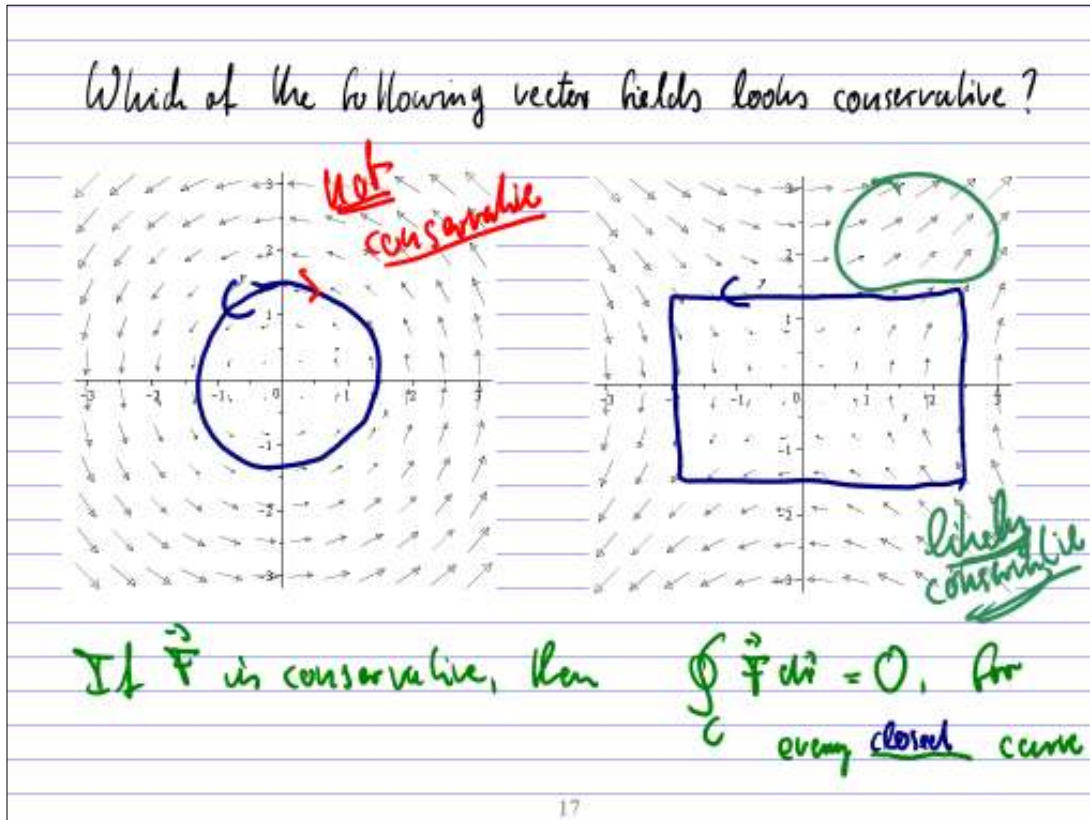 Which of the following vector fields looks conservative?
not
conservative
3
2
1
-3 -2 -1 0 1 2 3
x
-1
-2
-3
3
2
1
-3 -2 -1 0 1 2 3
x
-1
-2
-3
likely
conservative
If F⃗ is conservative, then ∮_C F⃗ dr⃗ = 0, for
every closed curve
17